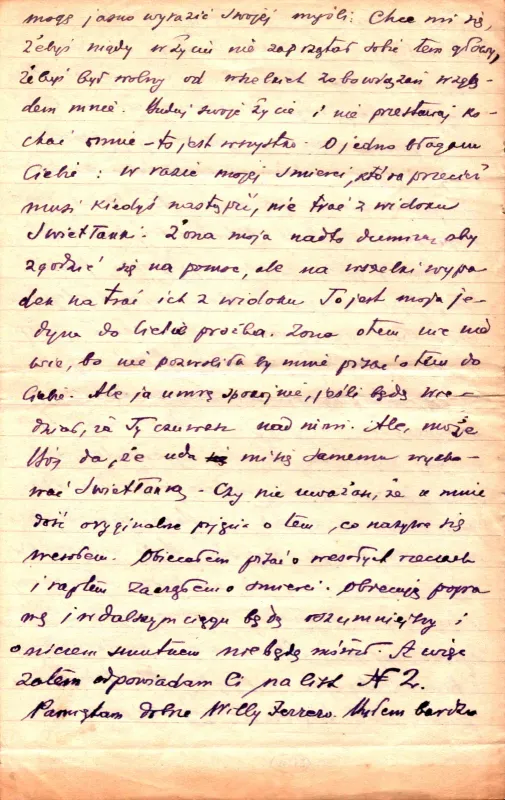 mogę jasno wyrazić swojej myśli: Chce mi się,
żebyś nigdy w życiu nie zaprzątał sobie tem głowy,
żebyś był wolny od wszelkich zobowiązań wzglę-
dem mnie. Buduj swoje życie i nie przestawaj ko-
chać mnie – to jest wszystko. O jedno błagam
Ciebie: w razie mojej śmierci, która przecież
musi kiedyś nastąpić, nie trać z widoku
Swietłanki. Żona moja nadto dumna, aby
zgodzić się na pomoc, ale na wszelki wypa
dek na trać ich z widoku To jest moja je-
dyna do Ciebie prośba. Żona o tem nic nie
wie, bo nie pozwoliła by mnie pisać o tem do
Ciebie. Ale ja umrę spokojnie, jeśli będę wie-
dział, że Ty czuwasz nad nimi. Ale, może
Bóg da, że uda mi się samemu wycho-
wać Swietłankę – Czy nie uważasz, że u mnie
dość oryginalne pojęcie o tem, co nazywa się
wesołem. Obiecałem pisać o wesołych rzeczach
i raptem zacząłem o śmierci. Obiecuję popra
wę i w dalszym ciągu będę rozumniejszy i
o niczem smutnem nie będę mówił. A więc
zatem odpowiadam Ci na list № 2.
Pamiętam dobrze Willy Ferrero. Byłem bardzo